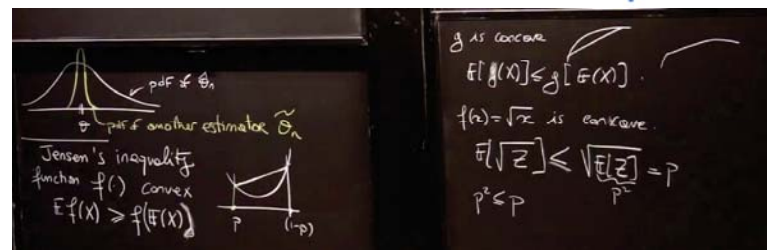 pdf of θ̂ₙ
θ
pdf of another estimator θ̃ₙ
Jensen's inequality
function f(·) convex
E f(X) ≥ f(E(X))
p
(1-p)
g is concave
E[g(X)] ≤ g[E(X)].
f(x) = √x is concave.
E[√Z] ≤ √E[Z] = p
p²
p² ≤ p